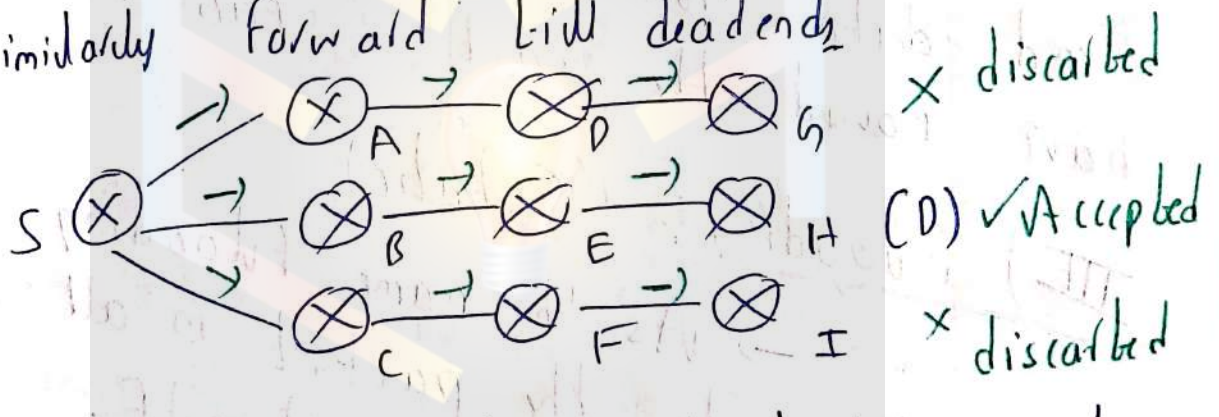 imidardy forward till deadends
A D G × discarbed
S B E H (D) ✓ Accepbed
C F I × discarbed